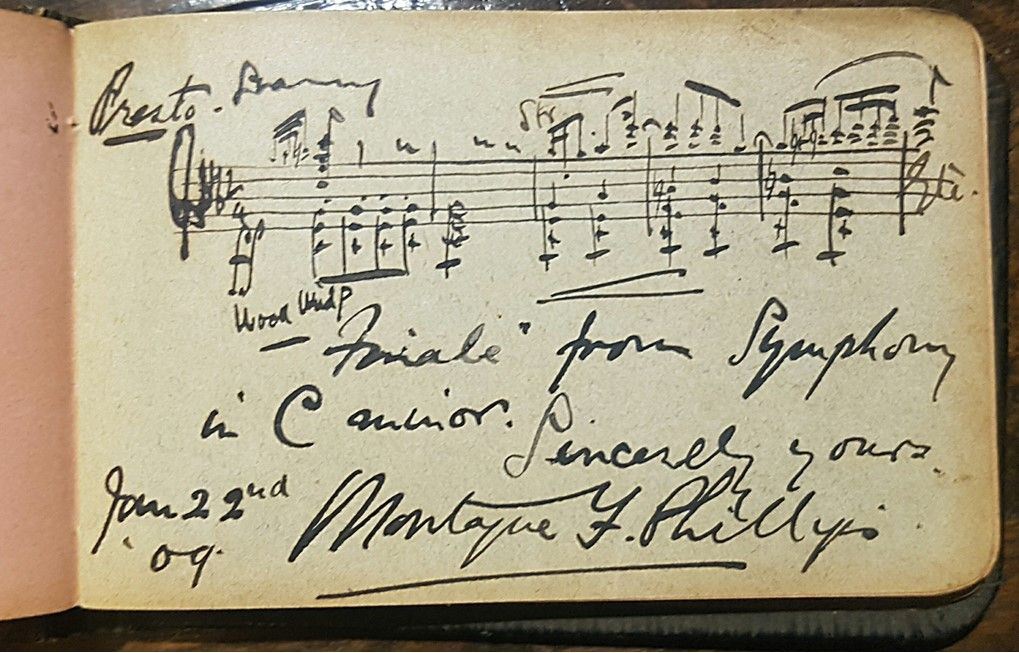 Presto.
Str
Wood Wind
"Finale" from Symphony
in C minor.
Sincerely yours.
Jan 22nd
'09.
Montague F. Phillips.